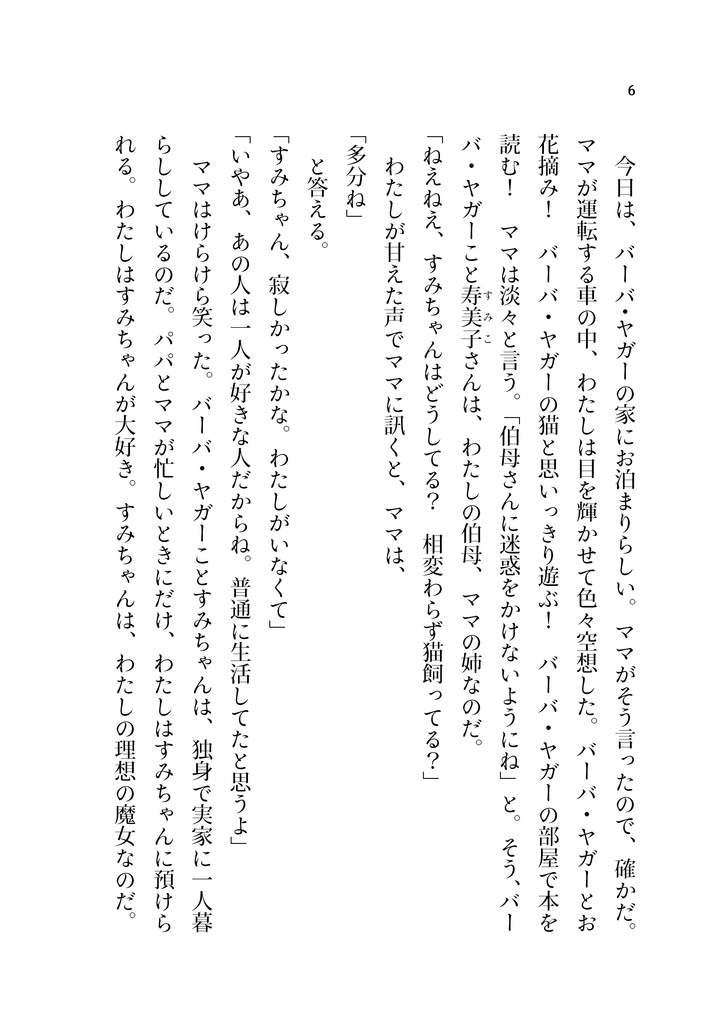 6
今日は、バーバ・ヤガーの家にお泊まりらしい。ママがそう言ったので、確かだ。
ママが運転する車の中、わたしは目を輝かせて色々空想した。バーバ・ヤガーとお
花摘み！　バーバ・ヤガーの猫と思いっきり遊ぶ！　バーバ・ヤガーの部屋で本を
読む！　ママは淡々と言う。「伯母さんに迷惑をかけないようにね」と。そう、バー
バ・ヤガーこと寿美子さんは、わたしの伯母、ママの姉なのだ。
すみこ
「ねえねえ、すみちゃんはどうしてる？　相変わらず猫飼ってる？」
わたしが甘えた声でママに訊くと、ママは、
「多分ね」
と答える。
「すみちゃん、寂しかったかな。わたしがいなくて」
「いやあ、あの人は一人が好きな人だからね。普通に生活してたと思うよ」
ママはけらけら笑った。バーバ・ヤガーことすみちゃんは、独身で実家に一人暮
らししているのだ。パパとママが忙しいときにだけ、わたしはすみちゃんに預けら
れる。わたしはすみちゃんが大好き。すみちゃんは、わたしの理想の魔女なのだ。